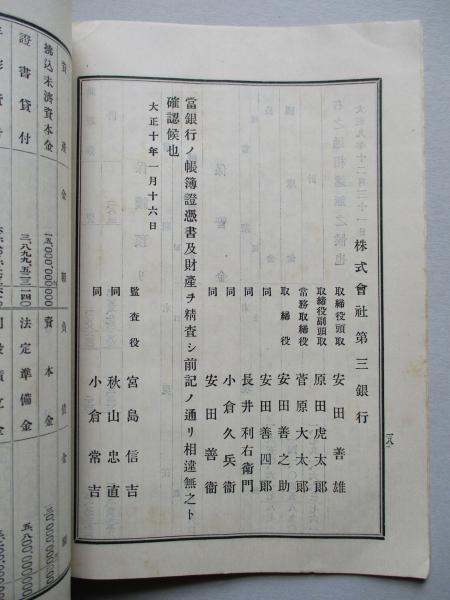 株式會社第三銀行
取締役頭取 安田善雄
取締役副頭取 原田虎太郎
常務取締役 菅原大太郎
取締役 安田善之助
同 安田善四郎
同 長井利右衛門
同 小倉久兵衞
同 安田善衞
當銀行ノ帳簿證憑書及財產ヲ精査シ前記ノ通リ相違無之ト
確認候也
大正十年一月十六日
監査役 宮島信吉
同 秋山忠直
同 小倉常吉
一八
資產金額負債金額
拂込未濟資本金
資本金
證書貸付
法定準備金